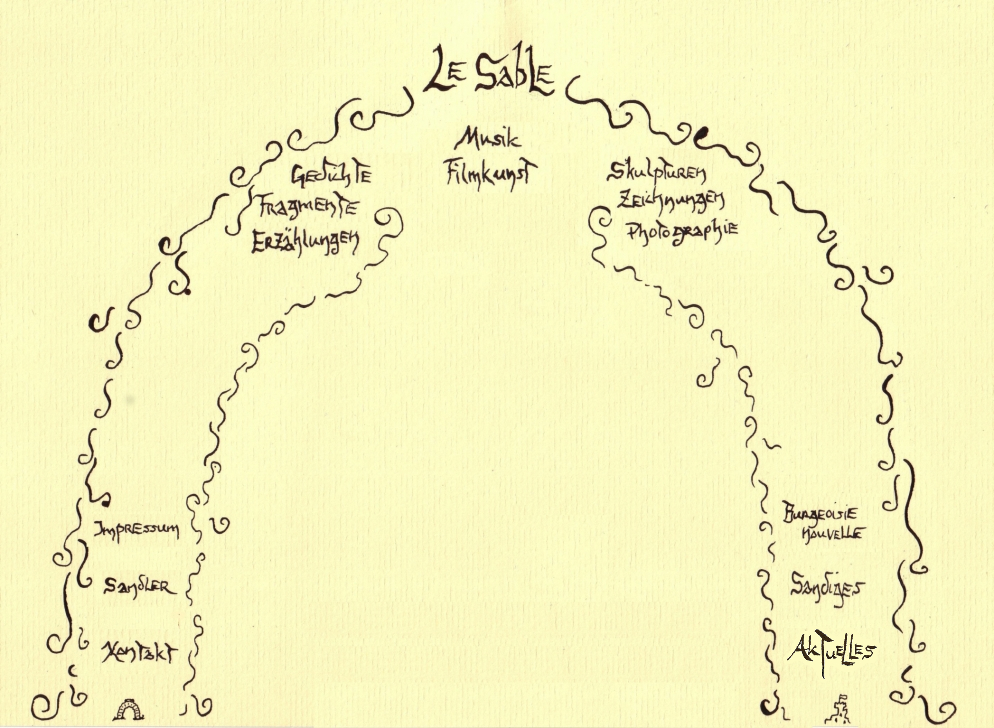 Le Sable
Musik
Filmkunst
Gedichte
Fragmente
Erzählungen
Skulpturen
Zeichnungen
Photographie
Impressum
Sandler
Kontakt
Burgeoisie
nouvelle
Sandiges
Aktuelles